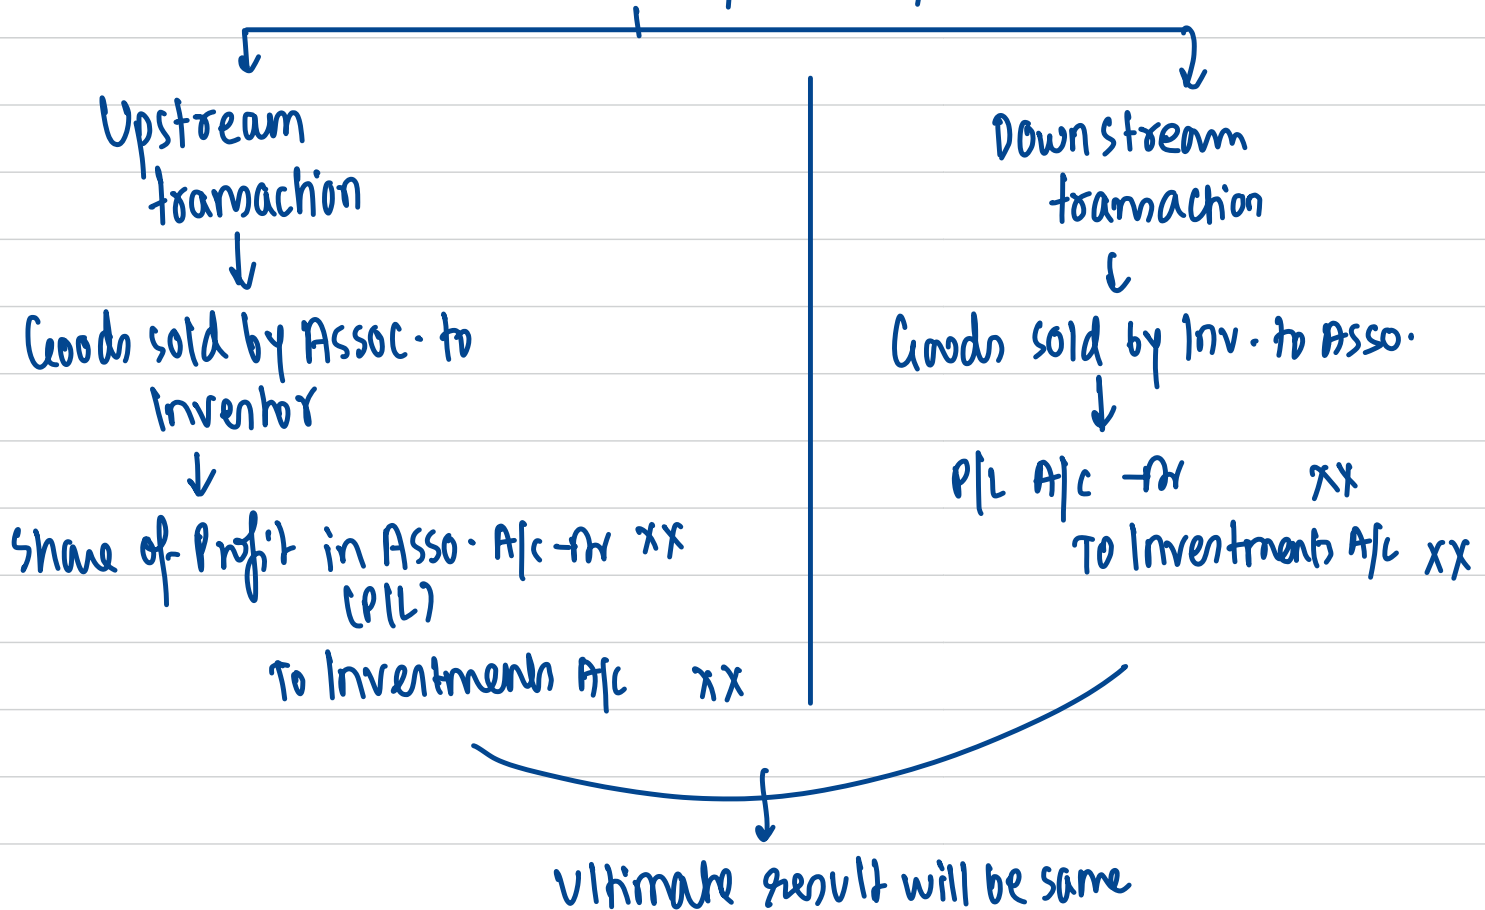 Upstream
transaction
Goods sold by Assoc. to
Investor
Share of Profit in Asso. A/c -Dr XX
(P/L)
To Investments A/c XX
Downstream
transaction
Goods sold by Inv. to Asso.
P/L A/c -Dr XX
To Investments A/c XX
Ultimate result will be same